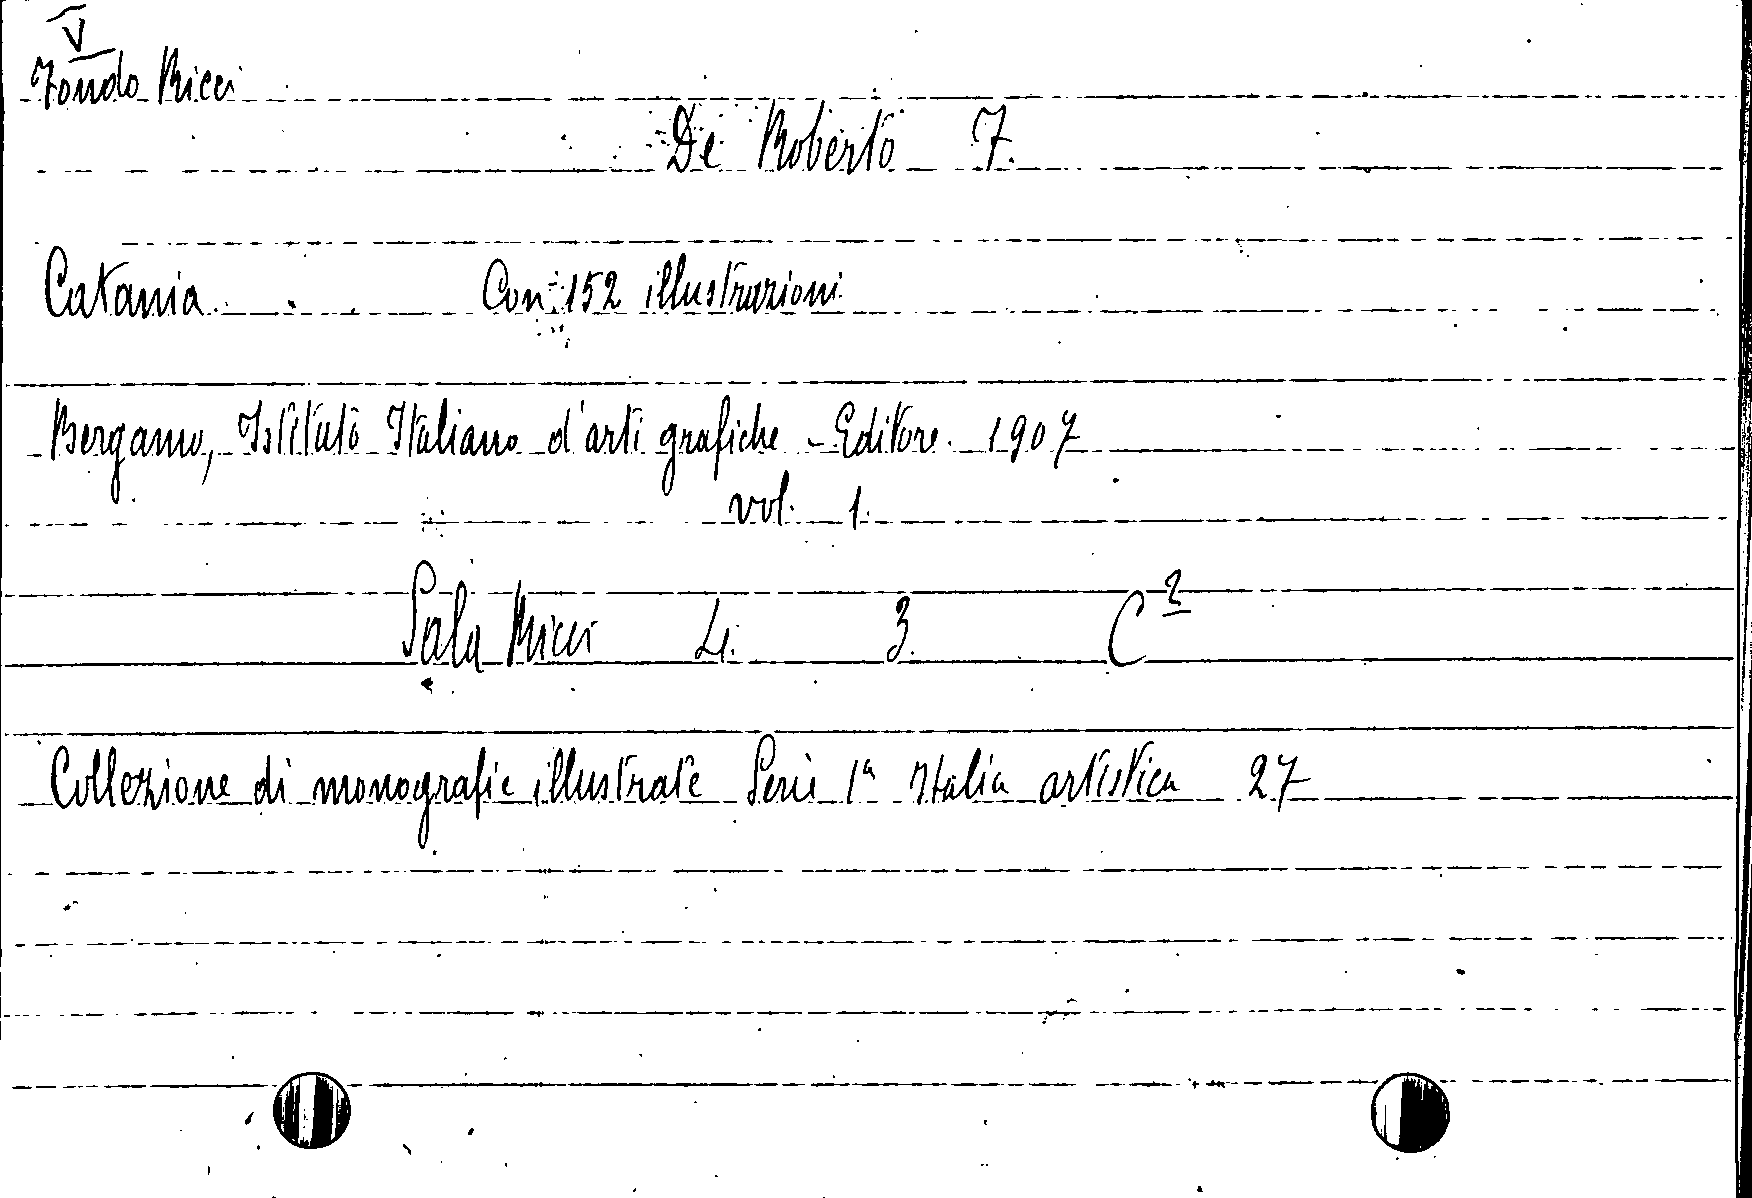 V
Fondo Ricci
De Roberto F.
Catania. Con 152 illustrazioni
Bergamo, Istituto Italiano d'arti grafiche - Editore. 1907
vol. 1.
Sala Ricci 4. 3. C2
Collezione di monografie illustrate Serie 1a Italia artistica 27